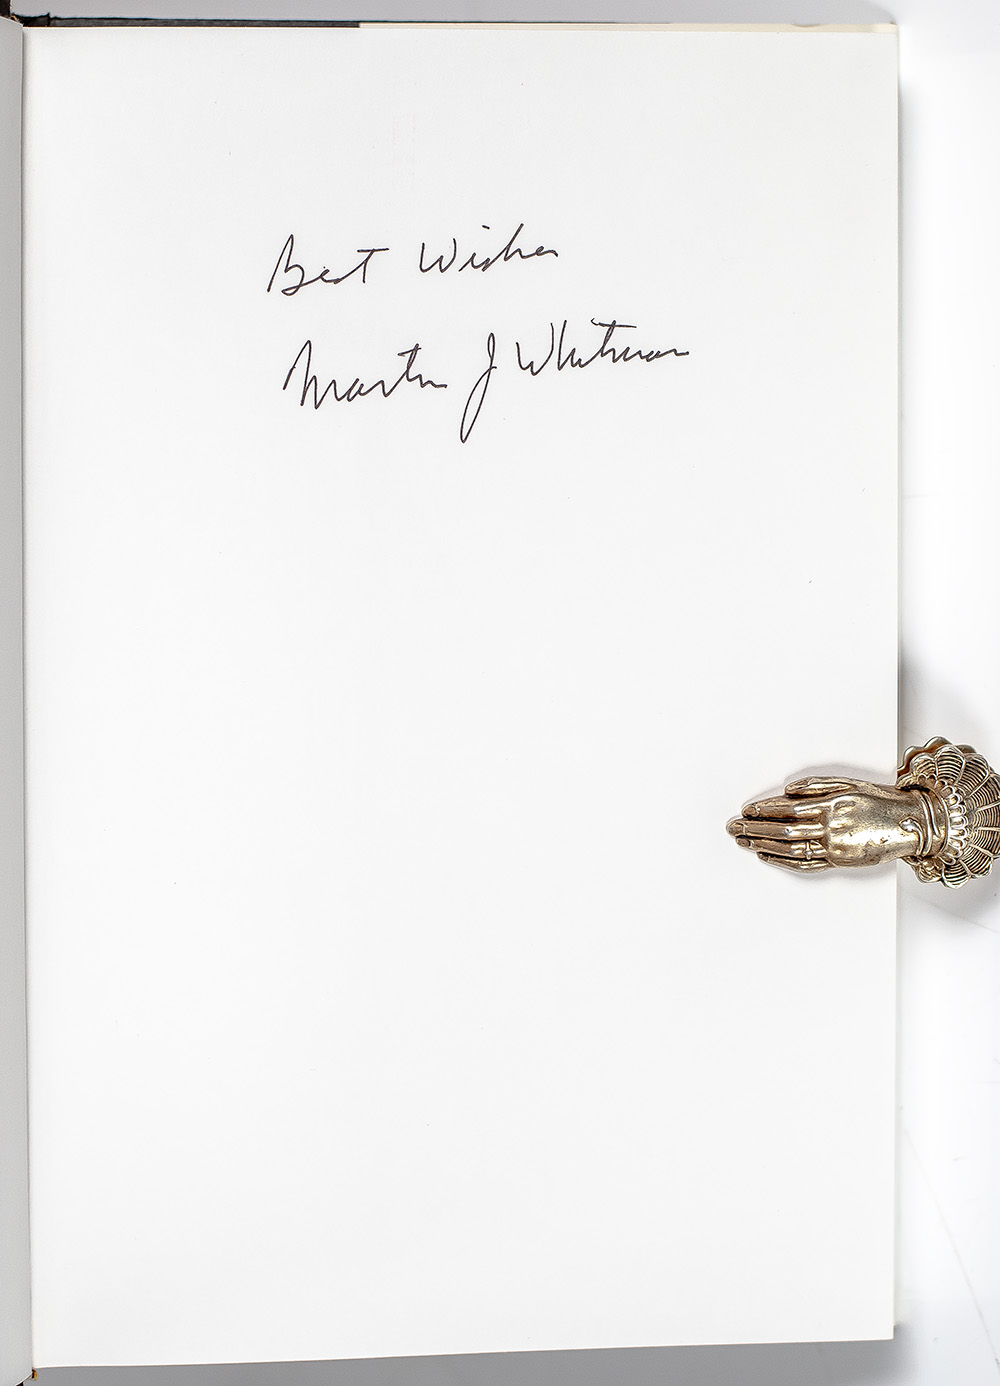 Best Wishes
Martin J Whitman